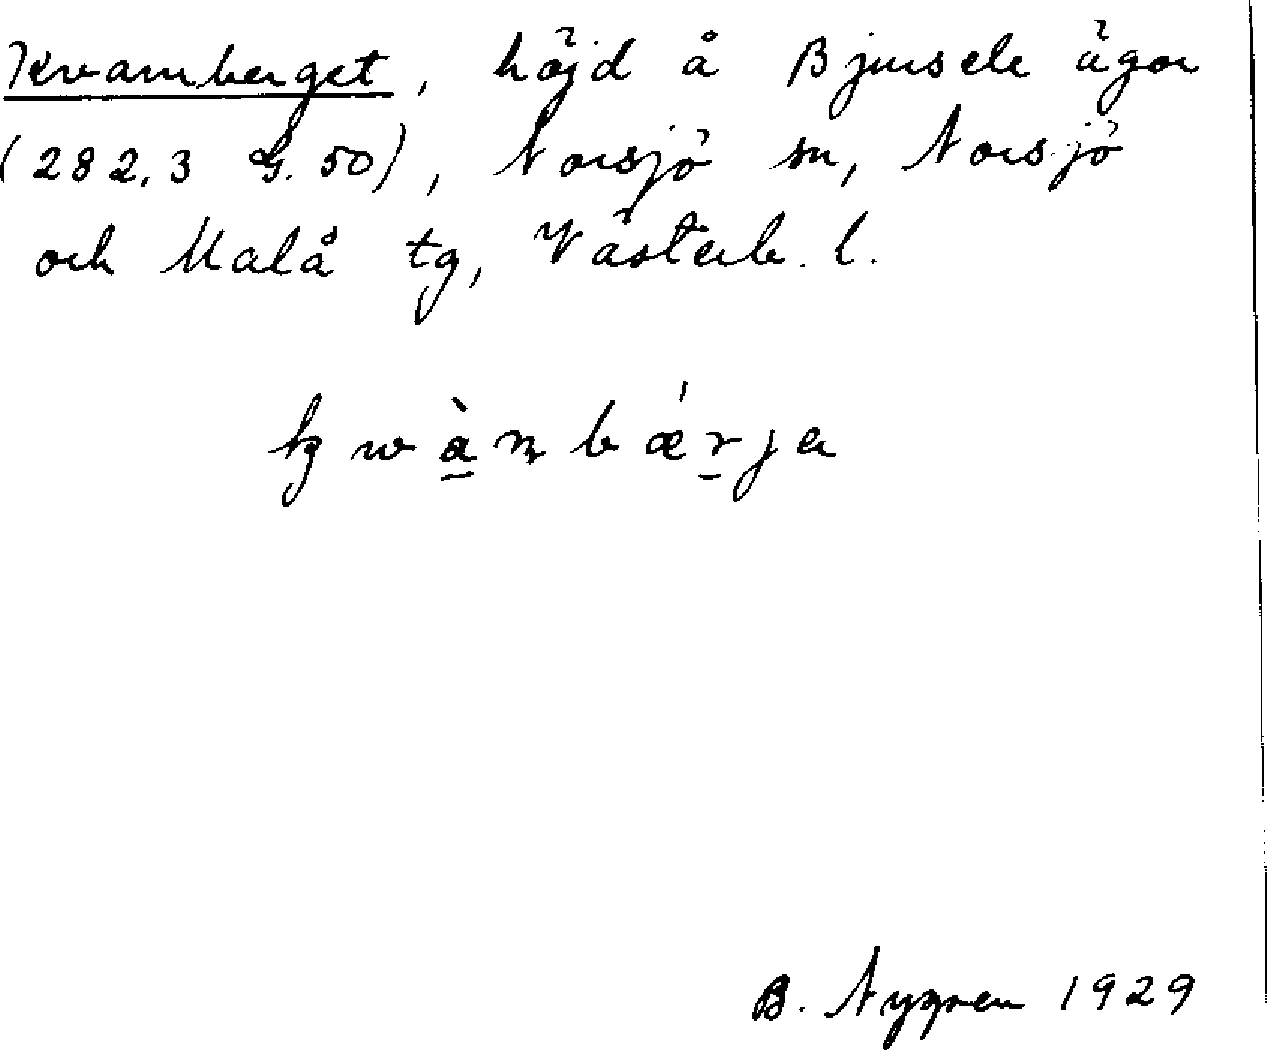 Kvarnberget, höjd å Bjursele ägor
(282,3 G. 50), Norsjö sn, Norsjö
och Malå tg, Västerb. l.
kwànbǽrja
B. Nygren 1929